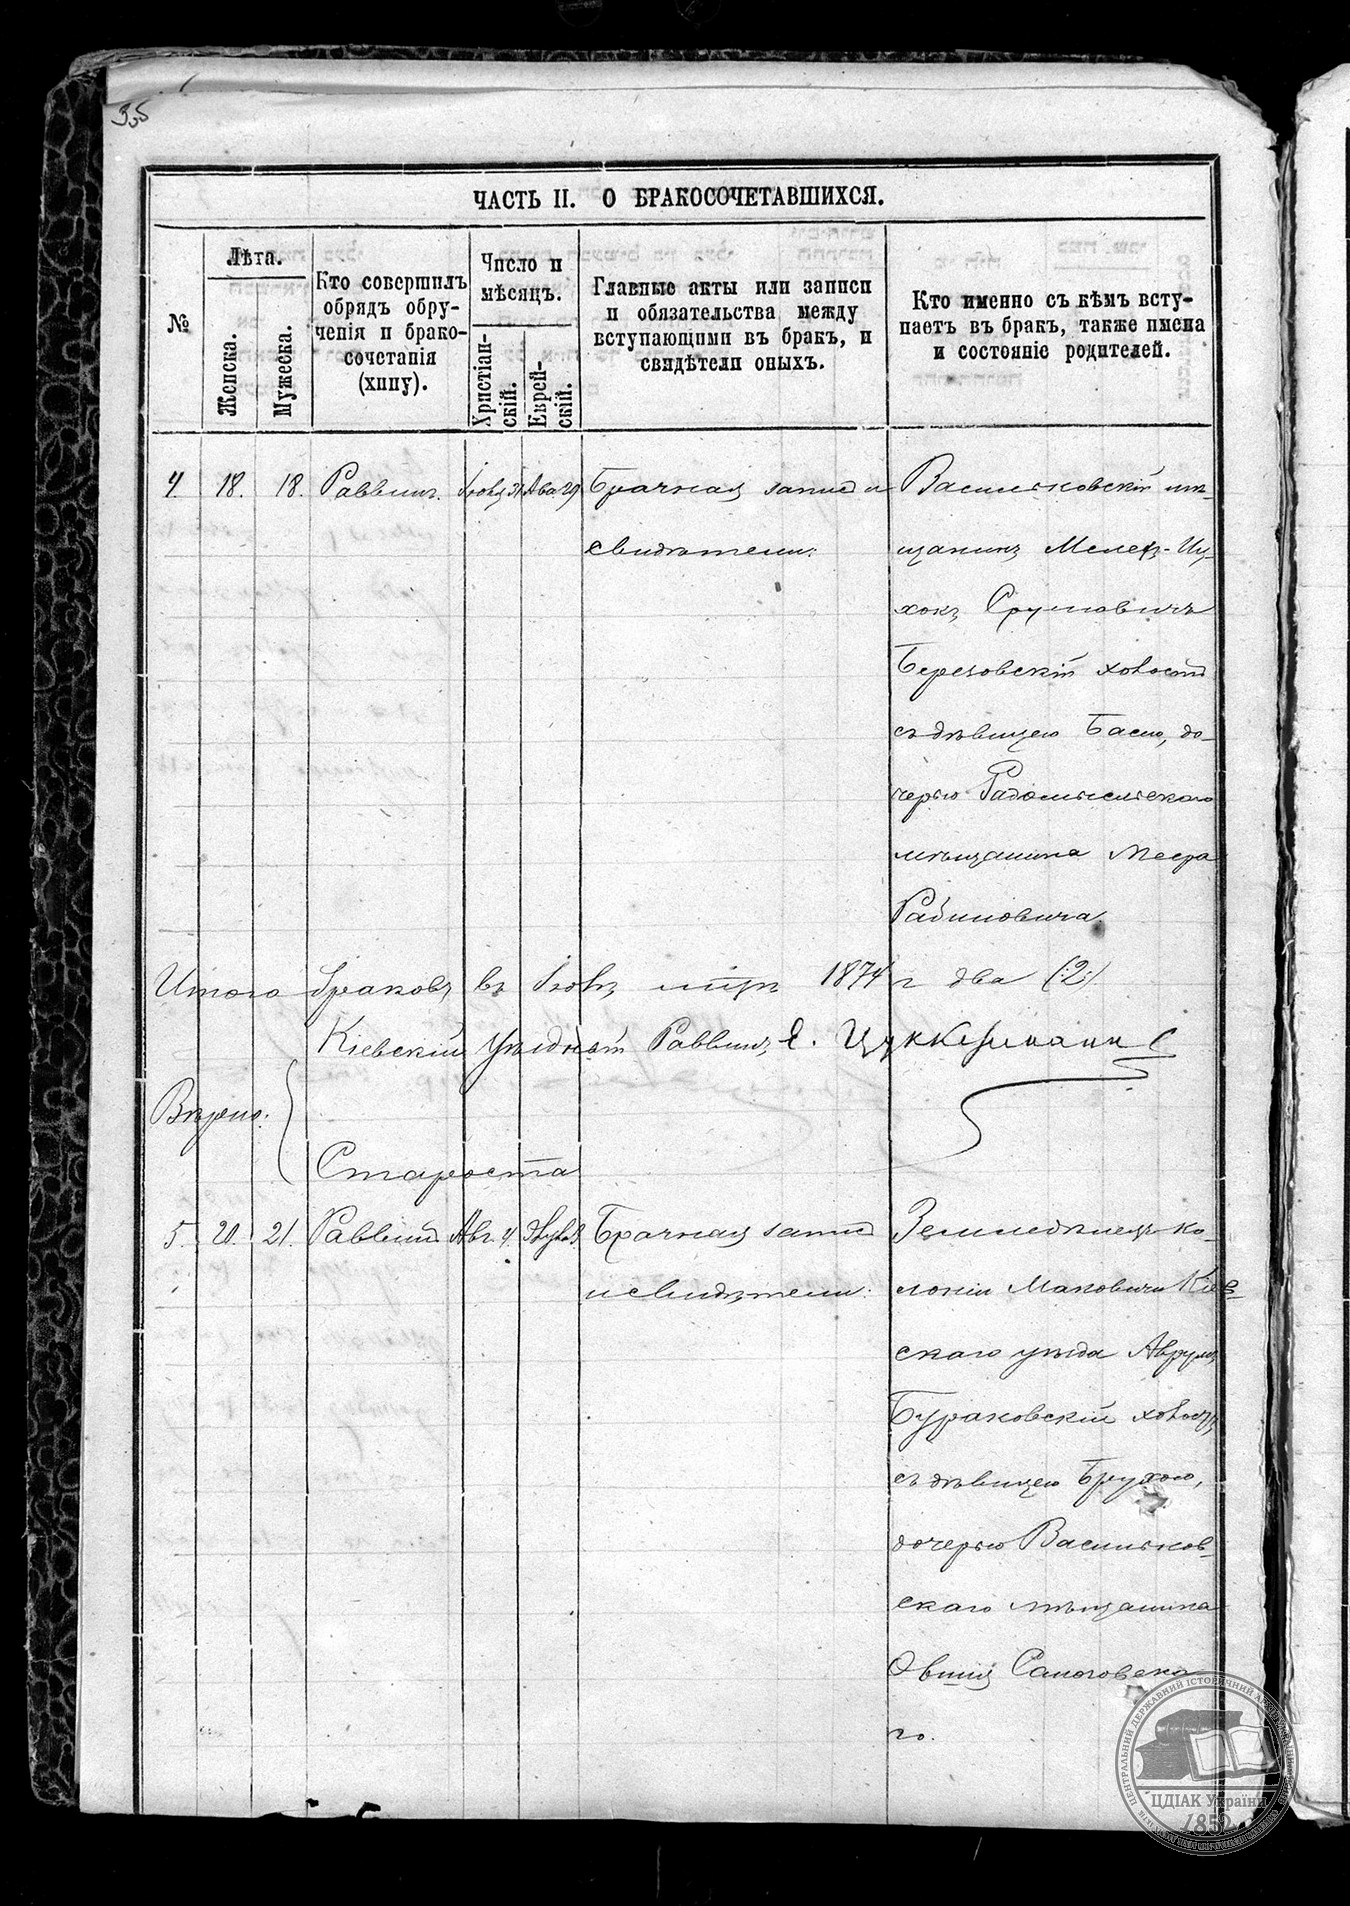 35
ЧАСТЬ II. О БРАКОСОЧЕТАВШИХСЯ.
№
Лѣта.
Женска.
Мужеска.
Кто совершилъ
обрядъ обру-
ченія и брако-
сочетанія
(хипу).
Число и
мѣсяцъ.
Христіан-
скій.
Еврей-
скій.
Главные акты или записи
и обязательства между
вступающими въ бракъ, и
свидѣтели оныхъ.
Кто именно съ кѣмъ всту-
паетъ въ бракъ, также имена
и состояніе родителей.
4 18. 18. Раввинъ. Іюля 31 Ава 29 Брачная запись и
свидѣтели:
Васильковскій мѣ-
щанинъ Мелех-Иц-
хокъ Срулевичъ
Березовскій холостъ
съ дѣвицею Басею, до-
черью Радомысльскаго
мѣщанина Меера
Рабиновича.
Итого браковъ въ Іюлѣ мцѣ 1874 г два (:2:)
Кіевскій Уѣздный Раввинъ Е. Цуккерманъ
Вѣрно:
Староста
5. 20. 21. Раввинъ Авг. 4. Элула 3. Брачная запись
и свидѣтели:
Земледѣлецъ ко-
лоніи Маковичи Кіев-
скаго уѣзда Аврумъ
Бураковскій холостъ,
съ дѣвицею Брухою,
дочерью Васильков-
скаго мѣщанина
Овшія Сапоговска-
го.
ЦЕНТРАЛЬНИЙ ДЕРЖАВНИЙ ІСТОРИЧНИЙ АРХІВ УКРАЇНИ
ЦДІАК України
1852